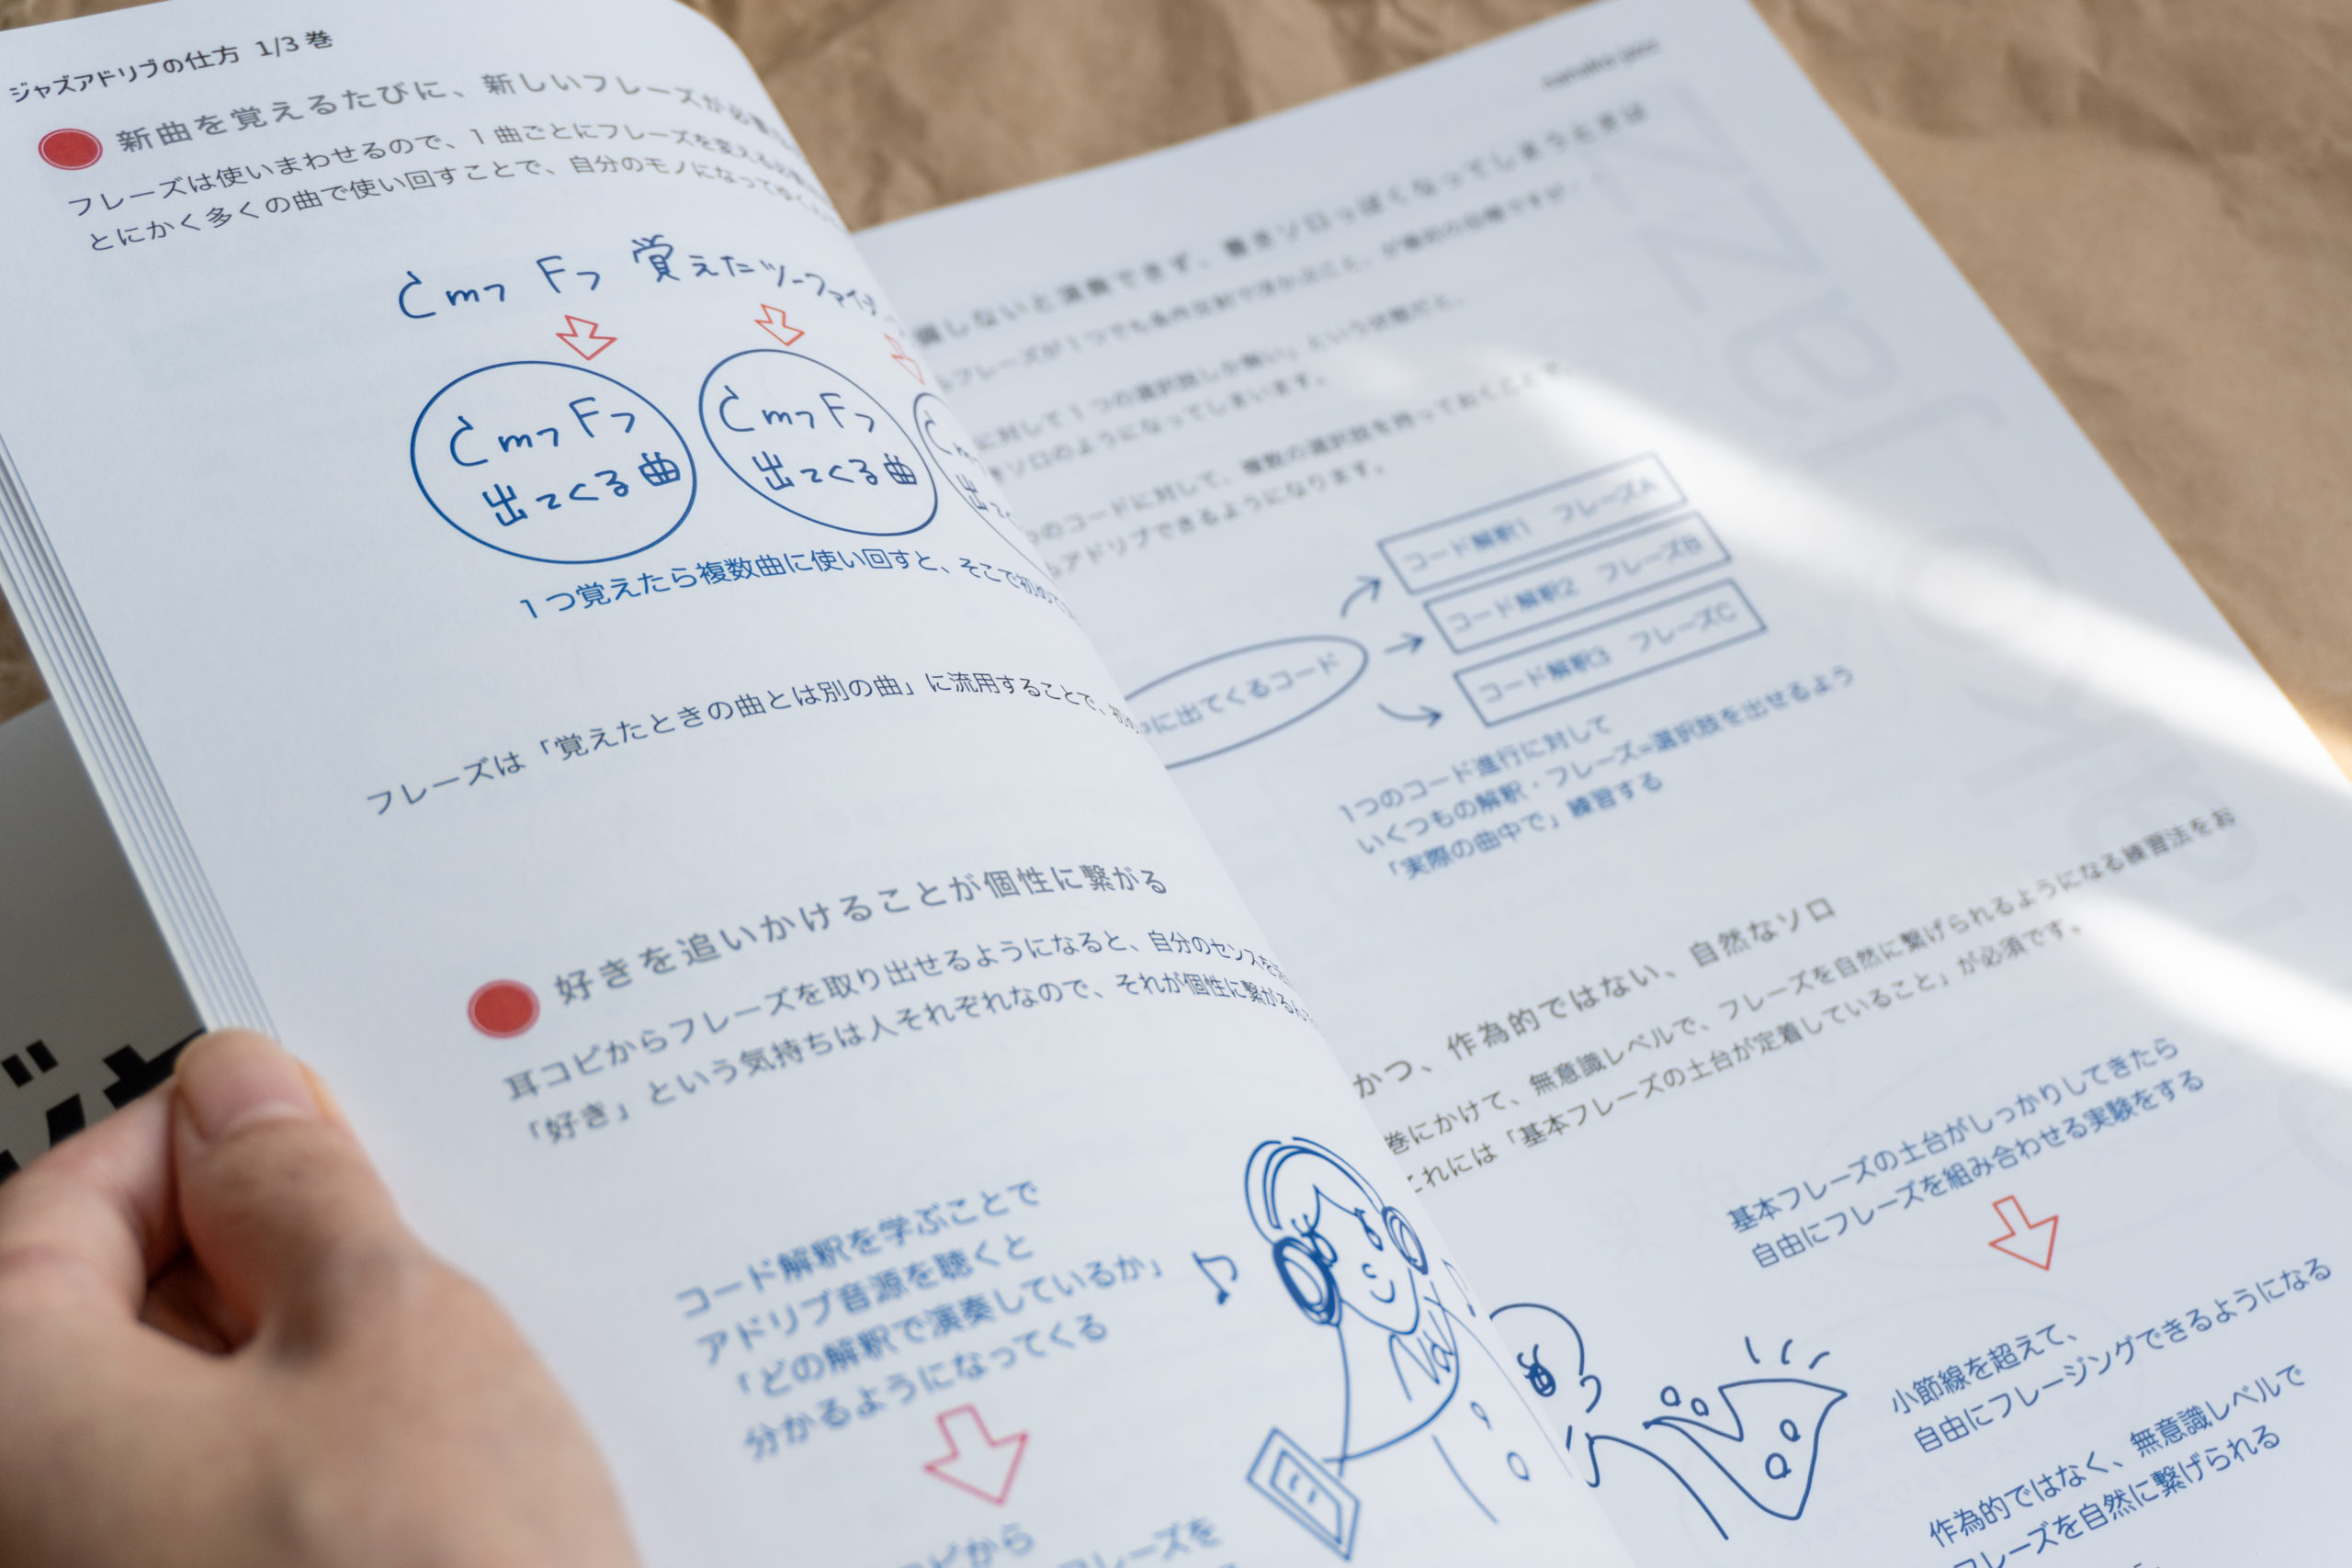 ジャズアドリブの仕方 1/3 巻
新曲を覚えるたびに、新しいフレーズが必要
フレーズは使いまわせるので、1 曲ごとにフレーズを変える必要
とにかく多くの曲で使い回すことで、自分のモノになってゆく
Cm7 F7 覚えたツーファイブ
Cm7 F7
出てくる曲
Cm7 F7
出てくる曲
1つ覚えたら複数曲に使い回すと、そこで初めて
フレーズは「覚えたときの曲とは別の曲」に流用することで、初め
好きを追いかけることが個性に繋がる
耳コピからフレーズを取り出せるようになると、自分のセンスを
「好き」という気持ちは人それぞれなので、それが個性に繋がる
コード解釈を学ぶことで
アドリブ音源を聴くと
「どの解釈で演奏しているか」
分かるようになってくる
コピから
フレーズを
識しないと演奏できず、書きソロっぽくなってしまうときは
フレーズが1つでも条件反射で浮かぶこと、が最初の目標ですが
に対して1つの選択肢しか無い」という状態だと、
きソロのようになってしまいます。
つのコードに対して、複数の選択肢を持っておくことで、
アドリブできるようになります。
に出てくるコード
コード解釈1 フレーズA
コード解釈2 フレーズB
コード解釈3 フレーズC
1つのコード進行に対して
いくつもの解釈・フレーズ=選択肢を出せるよう
「実際の曲中で」練習する
かつ、作為的ではない、自然なソロ
巻にかけて、無意識レベルで、フレーズを自然に繋げられるようになる練習法をお
これには「基本フレーズの土台が定着していること」が必須です。
基本フレーズの土台がしっかりしてきたら
自由にフレーズを組み合わせる実験をする
小節線を超えて、
自由にフレージングできるようになる
作為的ではなく、無意識レベルで
フレーズを自然に繋げられる